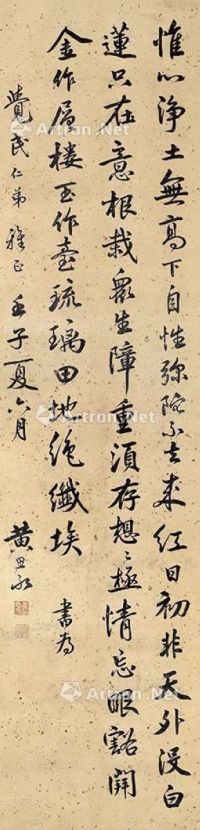 惟心净土無高下自性弥陀不去来紅日初非天外没白
蓮只在意根栽衆生障重須存想々極情忘眼豁開
金作層楼玉作臺琉璃田地絶纖埃 書為
覺民仁弟雅正 壬子夏六月 黄思永